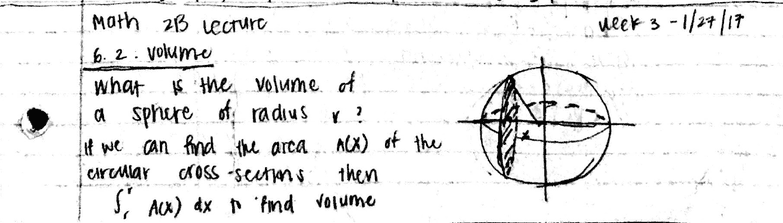 Math 2B Lecture week 3 - 1/27/17
6.2. volume
What is the volume of
a sphere of radius r?
if we can find the area A(x) of the
circular cross-sections then
∫ᵣʳ A(x) dx to find volume
x